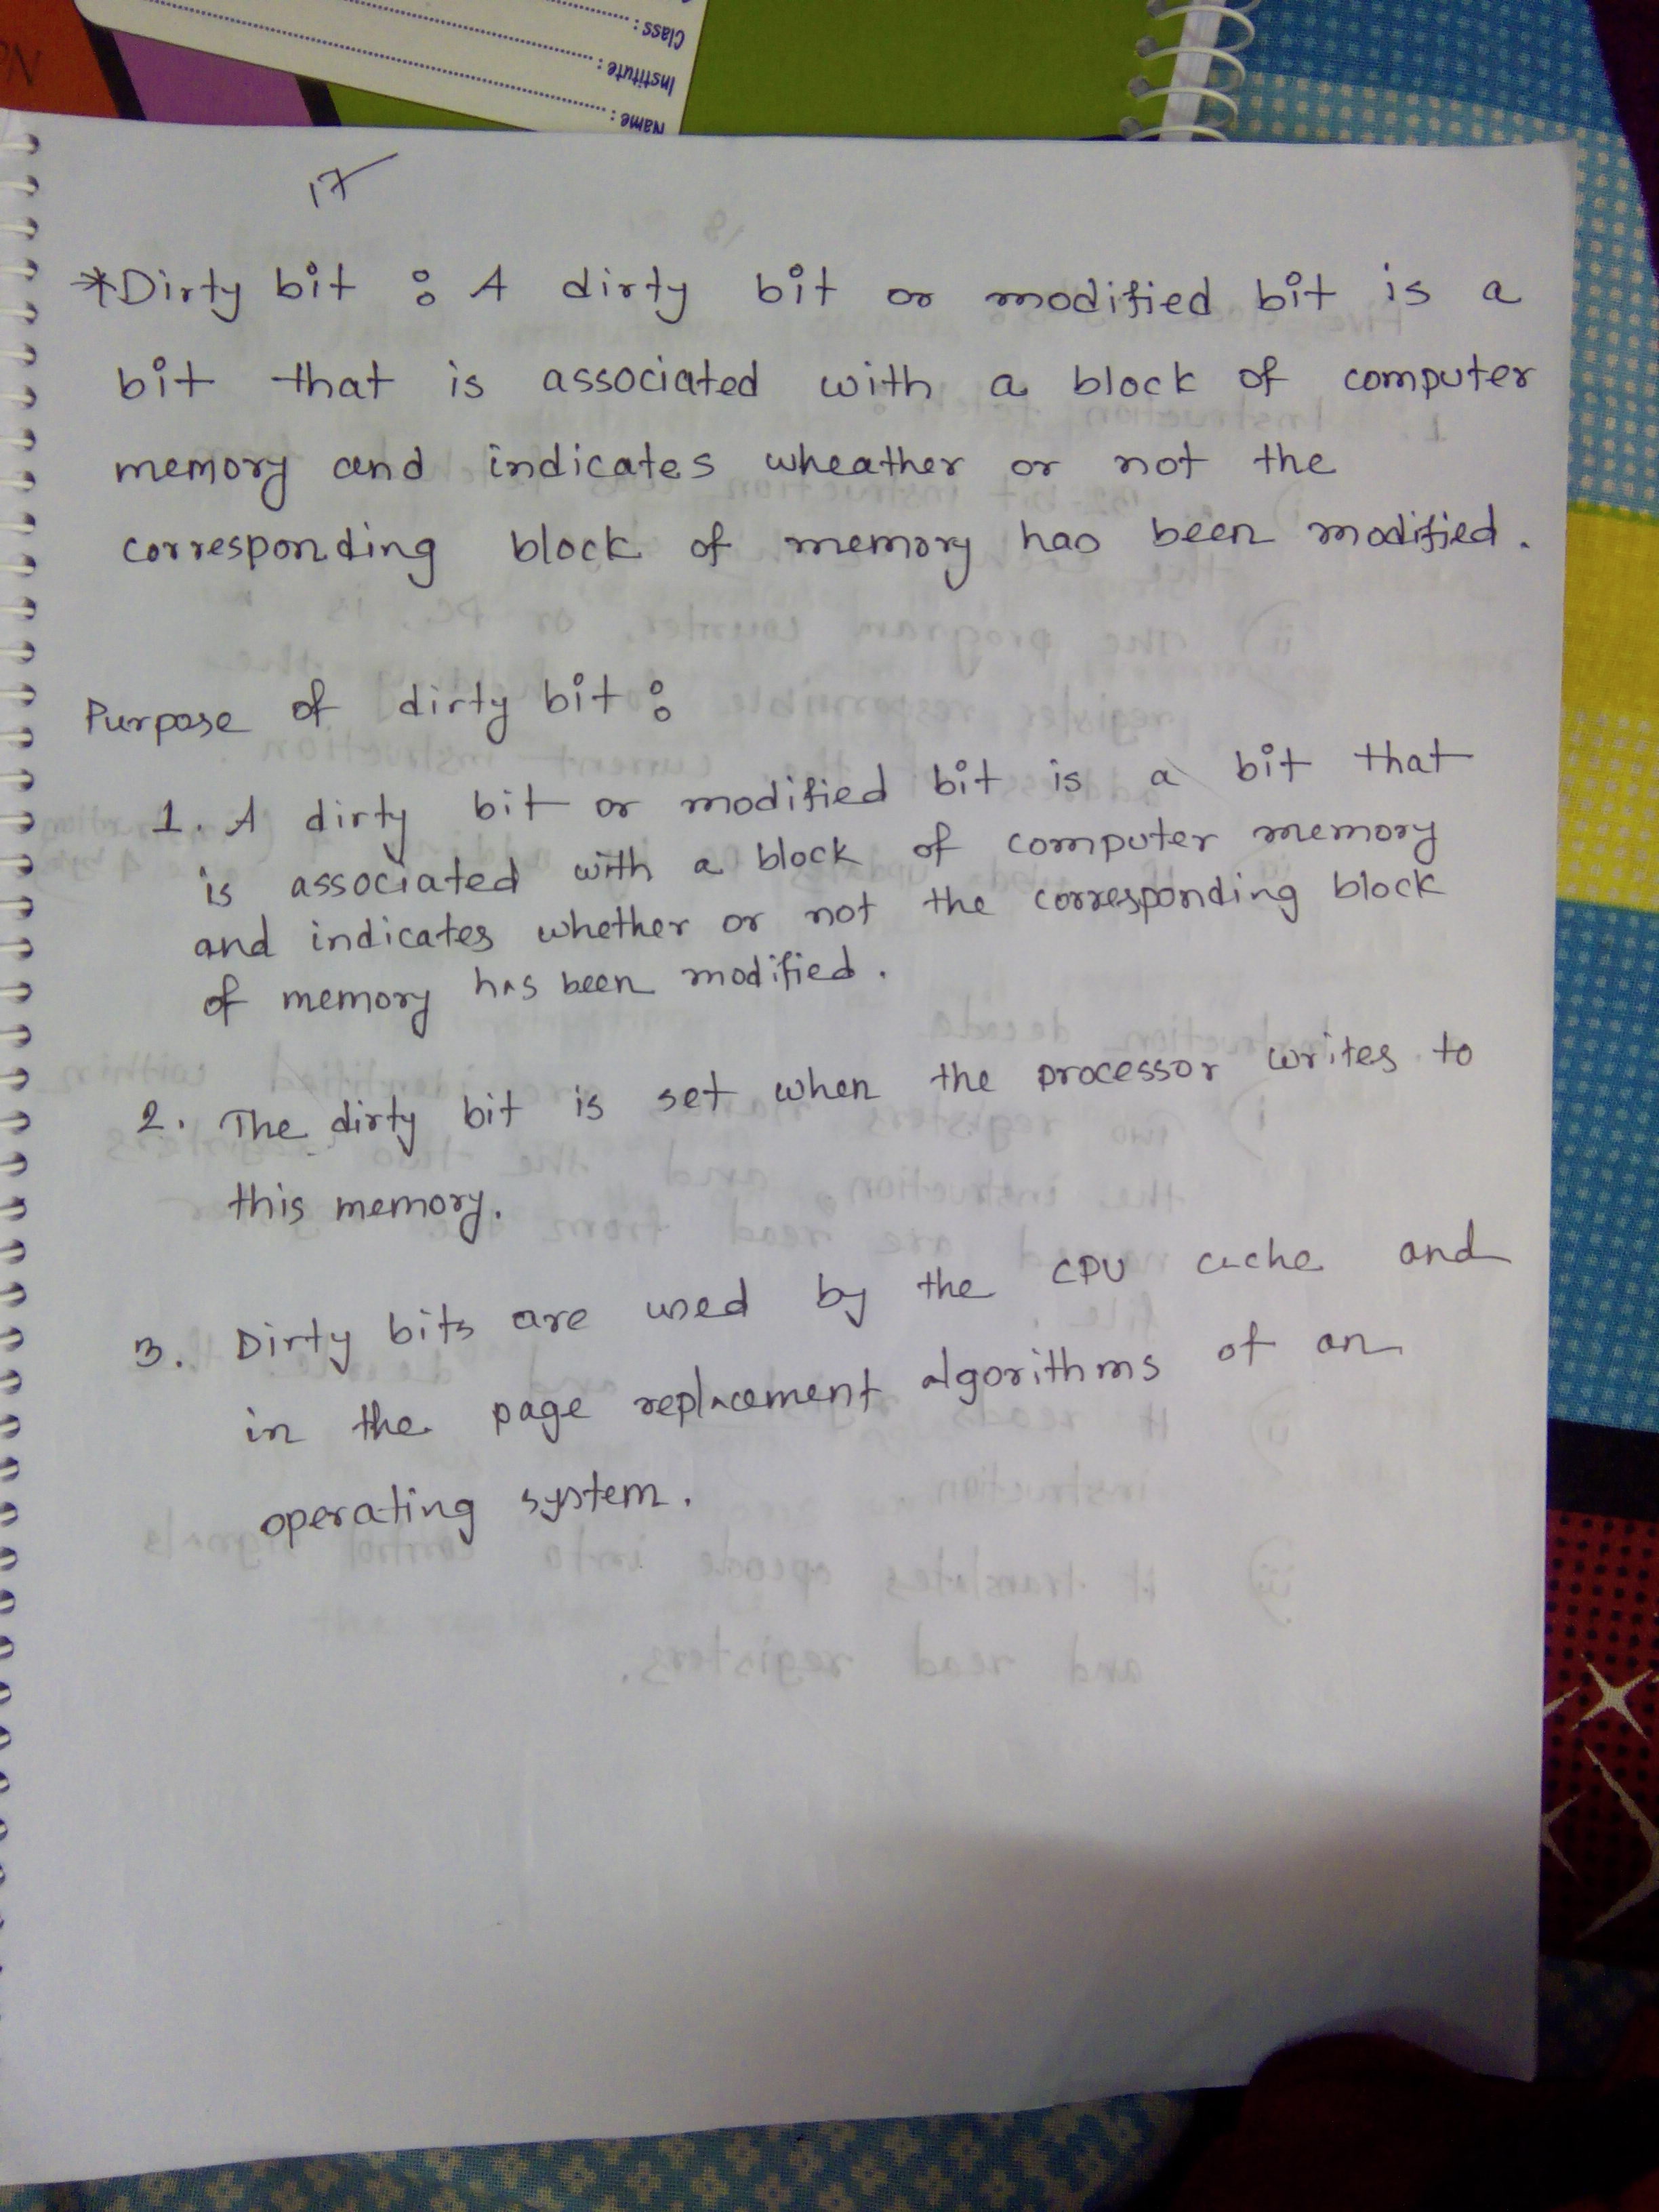 Class :
Institute :
Name :
17
*Dirty bit : A dirty bit or modified bit is a
bit that is associated with a block of computer
memory and indicates wheather or not the
corresponding block of memory has been modified.
Purpose of dirty bit :
1. A dirty bit or modified bit is a bit that
is associated with a block of computer memory
and indicates whether or not the corresponding block
of memory has been modified.
2. The dirty bit is set when the processor writes to
this memory.
3. Dirty bits are used by the CPU cache and
in the page replacement algorithms of an
operating system.